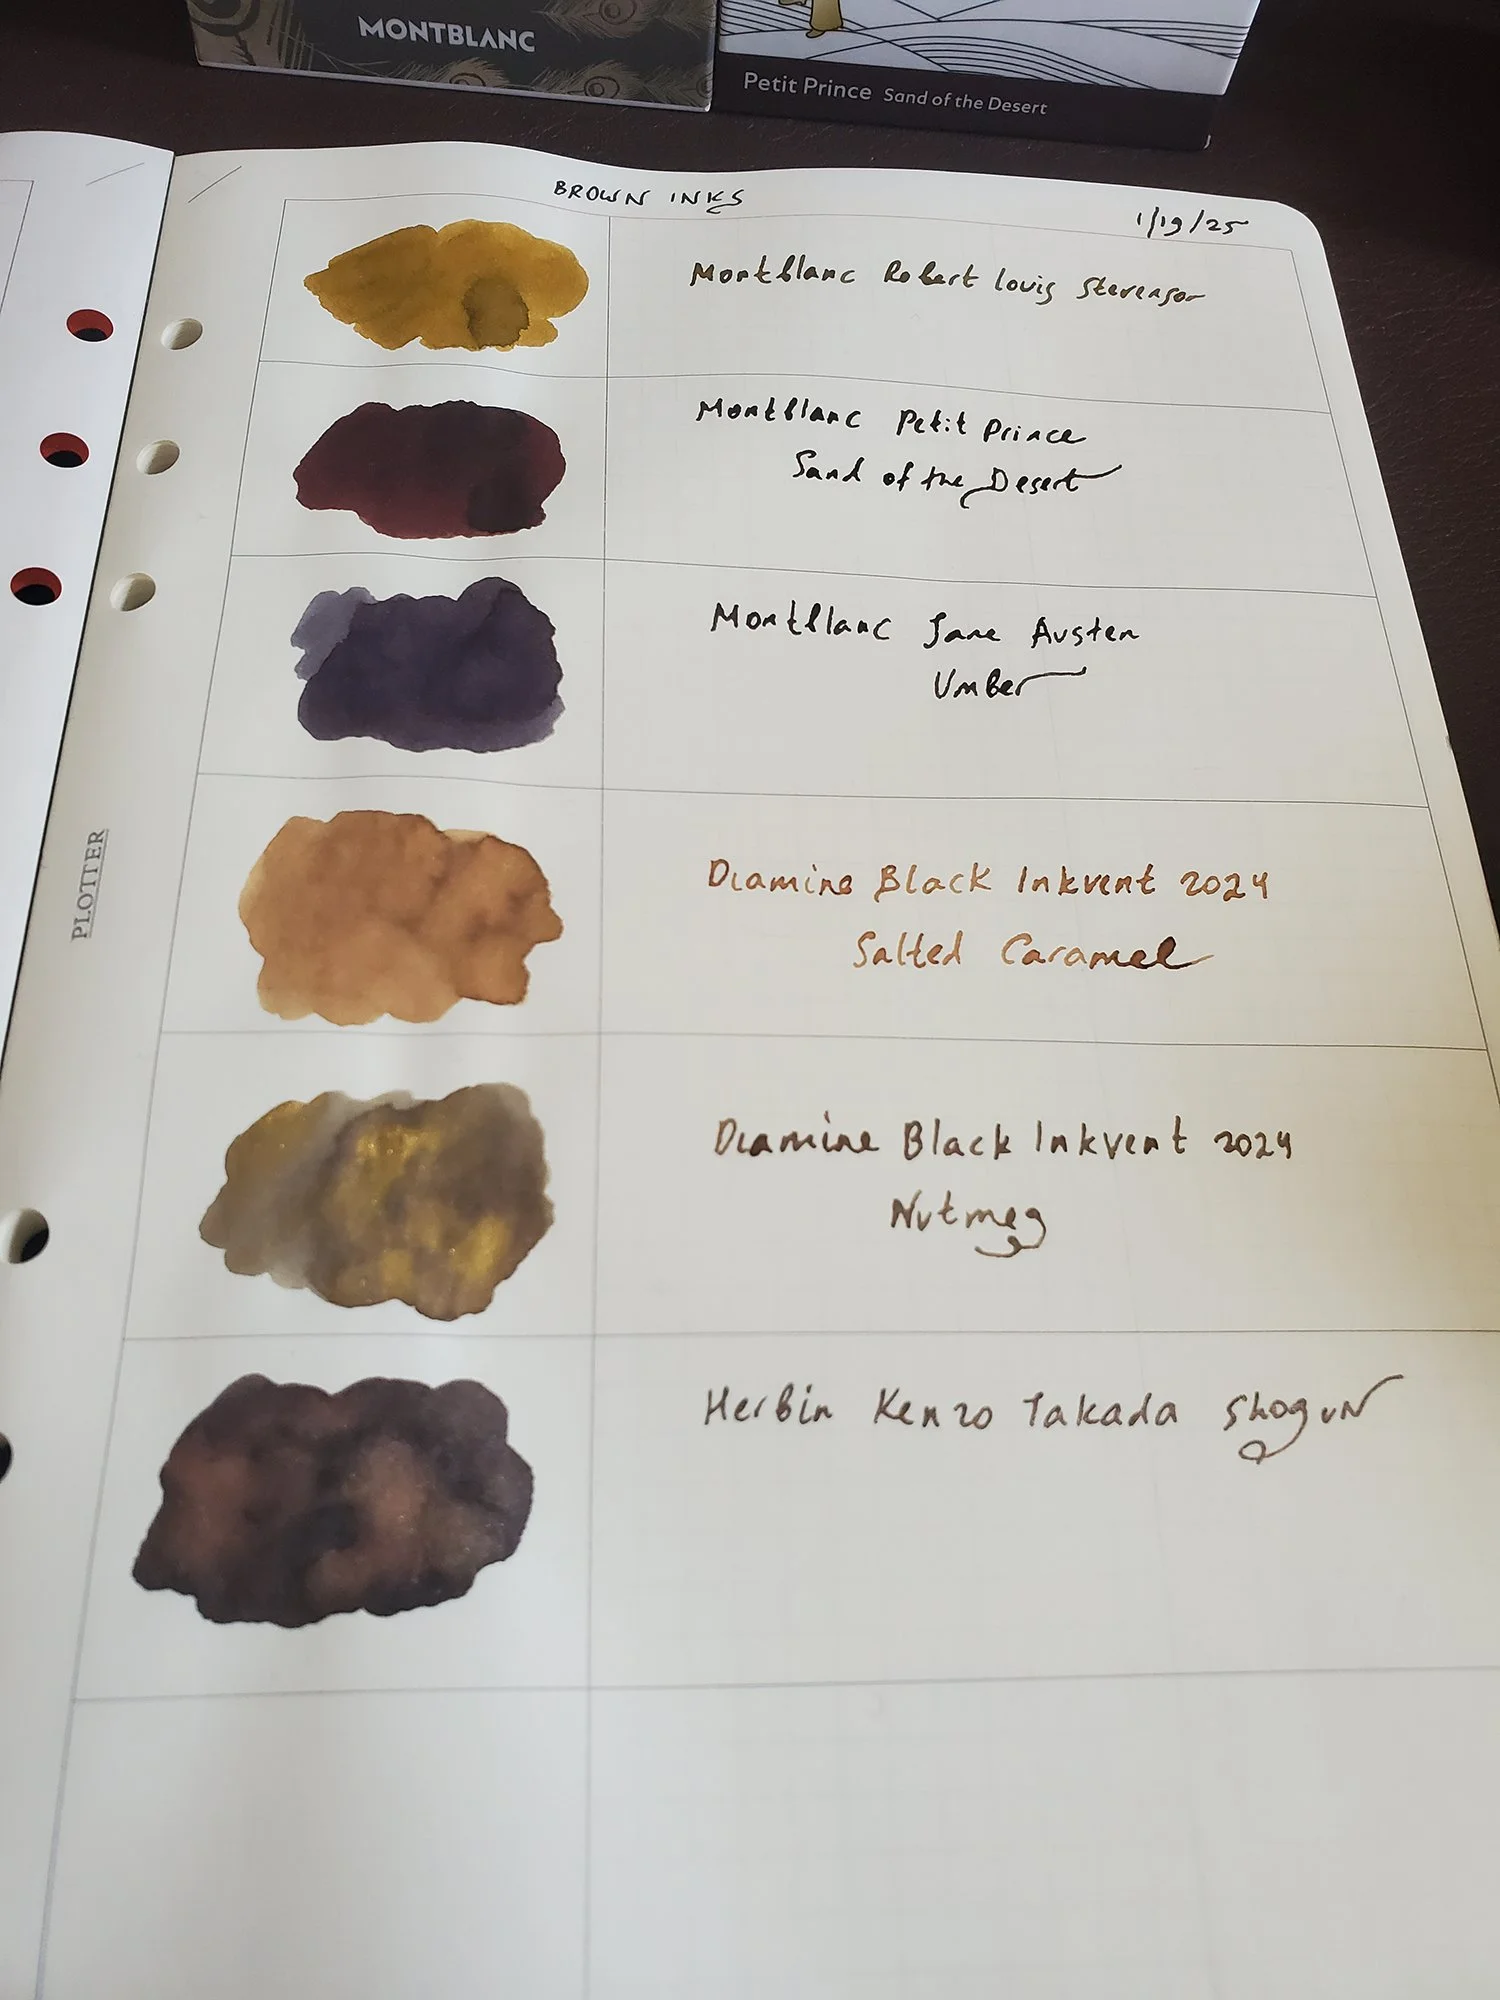 MONTBLANC
Petit Prince Sand of the Desert
BROWN INKS
1/19/25
Montblanc Robert Louis Stevenson
Montblanc Petit Prince
Sand of the Desert
Montblanc Jane Austen
Umber
PLOTTER
Diamine Black Inkvent 2024
Salted Caramel
Diamine Black Inkvent 2024
Nutmeg
Herbin Kenzo Takada Shogun